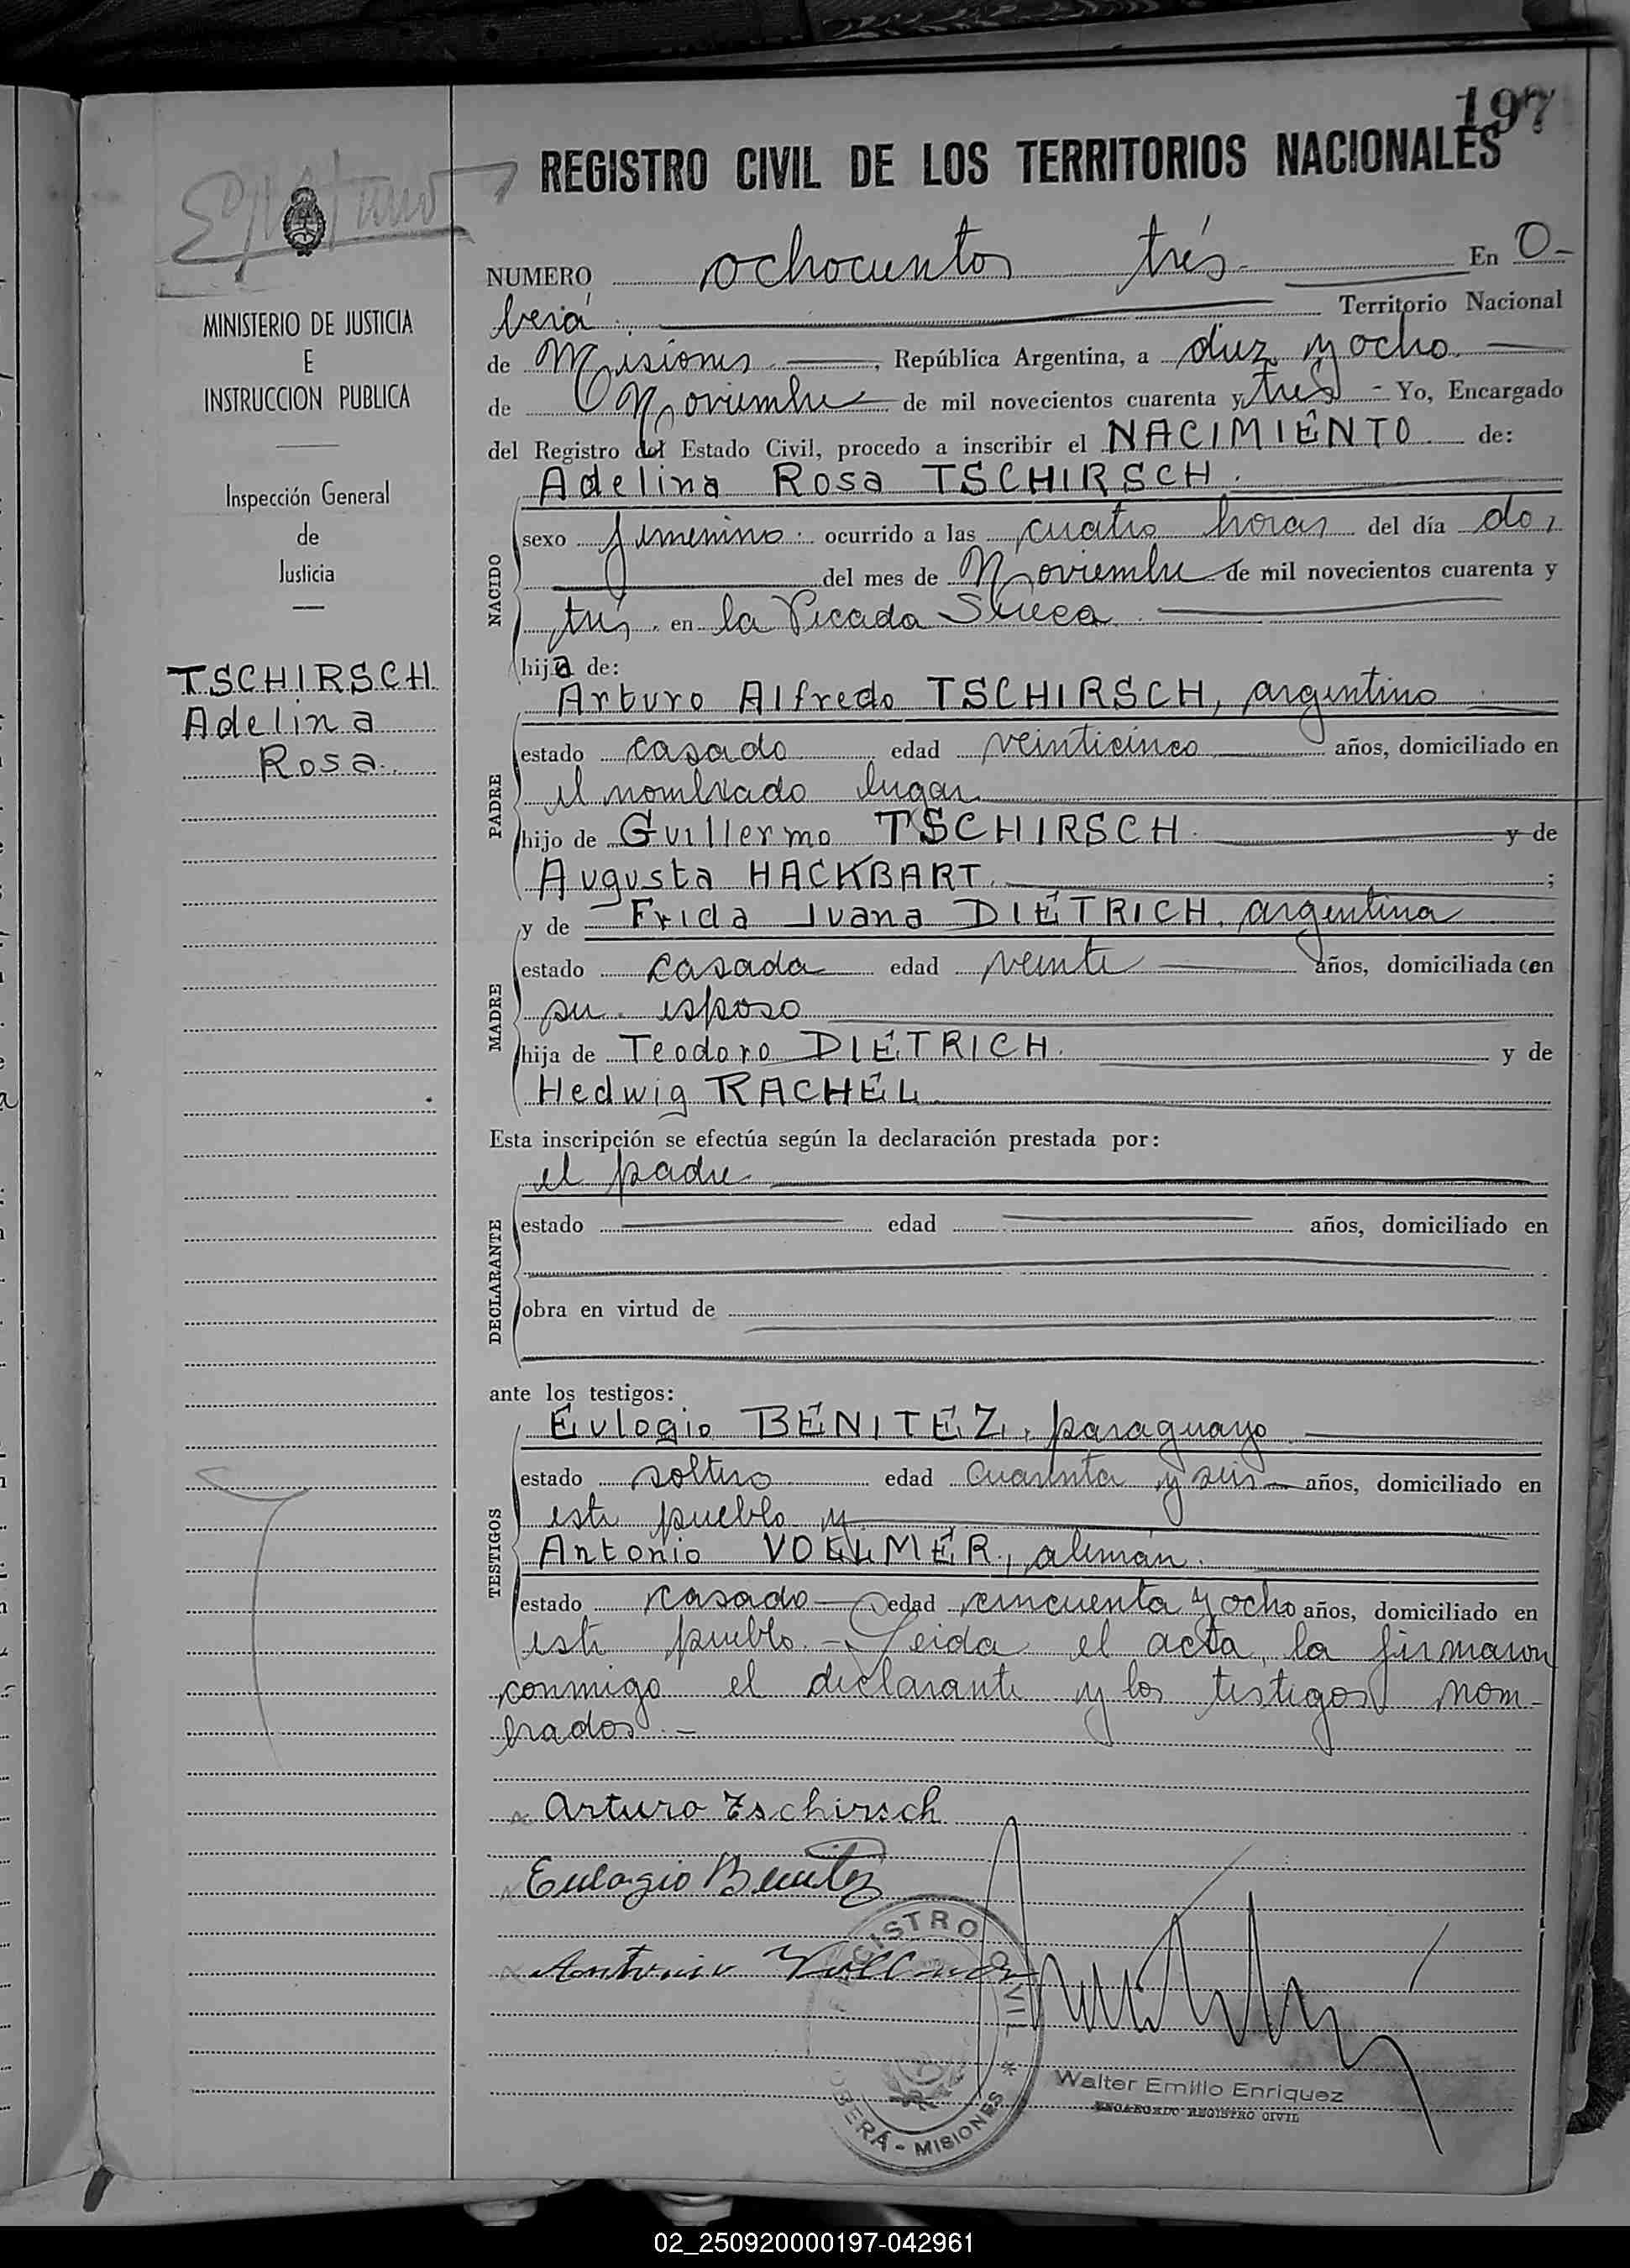 197
REGISTRO CIVIL DE LOS TERRITORIOS NACIONALES
MINISTERIO DE JUSTICIA
E
INSTRUCCION PUBLICA
Inspección General
de
Justicia
TSCHIRSCH
Adelina
Rosa
NUMERO ochocientos trés En O-
berá Territorio Nacional
de Misiones, República Argentina, a diez y ocho
de Noviembre de mil novecientos cuarenta y tres - Yo, Encargado
del Registro del Estado Civil, procedo a inscribir el NACIMIENTO de:
NACIDO
Adelina Rosa TSCHIRSCH.
sexo femenino ocurrido a las cuatro horas del día dos
del mes de Noviembre de mil novecientos cuarenta y
trés en la Picada Sueca
hija de:
PADRE
Arturo Alfredo TSCHIRSCH, argentino
estado casado edad veinticinco años, domiciliado en
el nombrado lugar
hijo de Guillermo TSCHIRSCH y de
Augusta HACKBART ;
MADRE
y de Frida Juana DIETRICH, argentina
estado casada edad veinte años, domiciliada con
su esposo
hija de Teodoro DIETRICH. y de
Hedwig RACHEL
Esta inscripción se efectúa según la declaración prestada por:
DECLARANTE
el padre
estado edad años, domiciliado en
obra en virtud de
ante los testigos:
TESTIGOS
Eulogio BENITEZ, paraguayo
estado soltero edad cuarenta y seis años, domiciliado en
este pueblo y
Antonio VOLLMER, alemán.
estado casado edad cincuenta y ocho años, domiciliado en
este pueblo.- Leida el acta, la firmaron
conmigo el declarante y los testigos nom-
brados.-
Arturo Tschirsch
Eulogio Benitez
Antonio Vollmer
REGISTRO CIVIL * OBERÁ - MISIONES
Walter Emilio Enriquez
ENCARGADO REGISTRO CIVIL
02_250920000197-042961